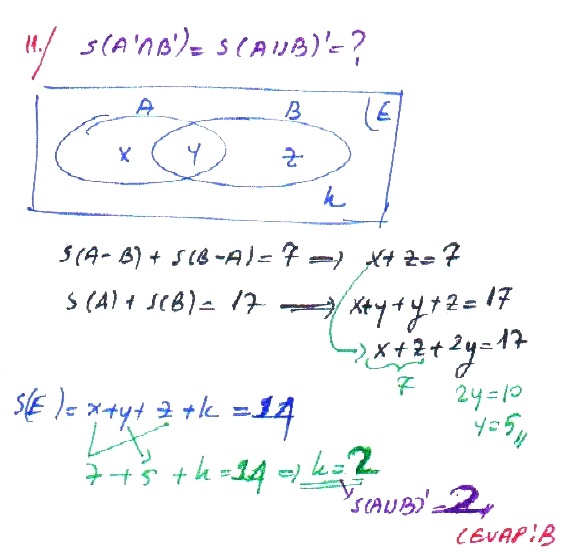 11./ s(A'∩B') = s(A∪B)' = ?
A B (E
x y z
k
s(A-B) + s(B-A) = 7 ⟹ x+z=7
s(A) + s(B) = 17 ⟹ x+y+y+z=17
x+z+2y=17
7 2y=10
y=5,,
s(E) = x+y+z+k=14
7+5+k=14 ⟹ k=2
s(A∪B)'=2,,
CEVAP:B